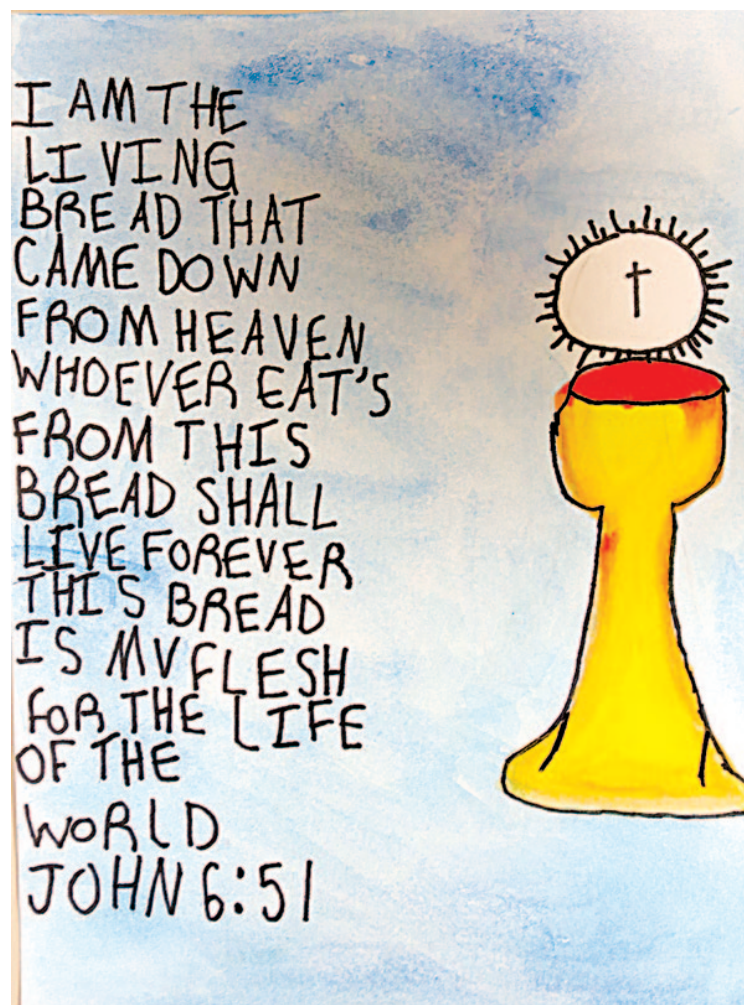 I AM THE
LIVING
BREAD THAT
CAME DOWN
FROM HEAVEN
WHOEVER EAT'S
FROM THIS
BREAD SHALL
LIVE FOREVER
THIS BREAD
IS MY FLESH
FOR THE LIFE
OF THE
WORLD
JOHN 6:51